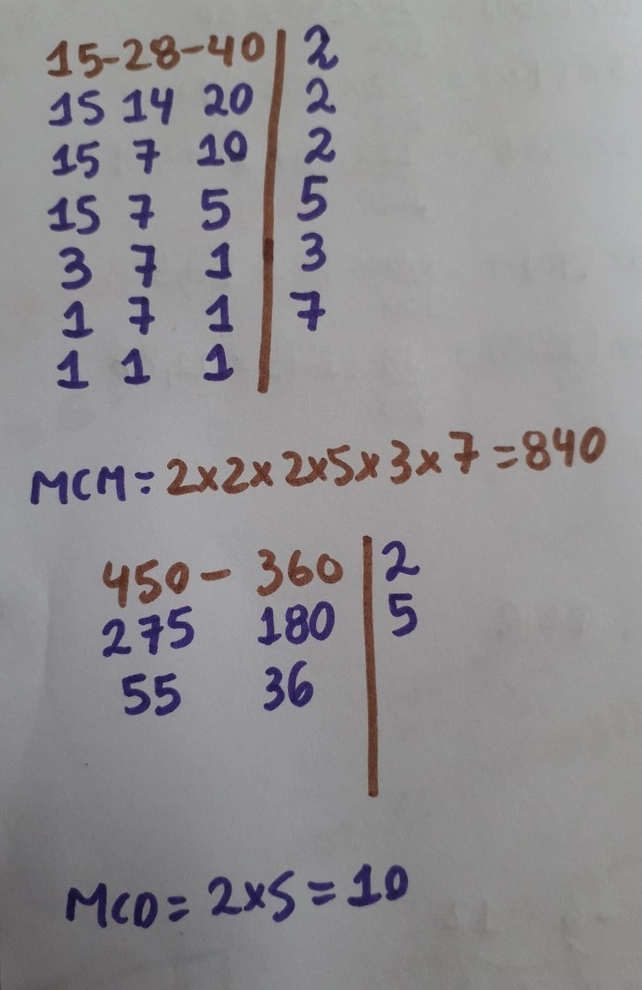 15-28-40 | 2
15 14 20 | 2
15 7 10 | 2
15 7 5 | 5
3 7 1 | 3
1 7 1 | 7
1 1 1 |
MCM = 2x2x2x5x3x7 = 840
450 - 360 | 2
275 180 | 5
55 36 |
MCD = 2x5 = 10